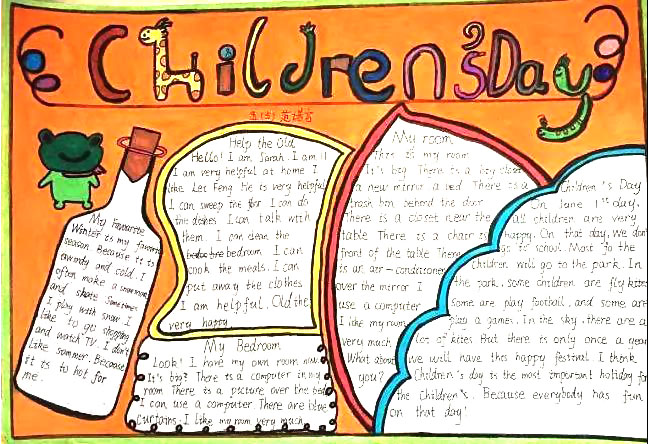 Children's Day
Help the Old
Hello! I am Sarah. I am 11
I am very helpful at home I
like Lei Feng. He is very helpful
I can sweep the I can do
the dishes I can talk with
them. I can clean the
bedroom I can
cook the meals. I can
put away the clothes
I am helpful. Old the
very happy
My Bedroom
Look! I have my own room now
It's big? There is a computer in my
room There is a picture over the bed
I can use a computer There are blue
curtains. I like my room very much
My Favourite
Winter is my favorite
season Because it is
and cold. I
often make a snowman
and skate Sometimes
I play with snow I
like to go
and watch TV. I don't
like summer. Because
it is to hot for
me.
My room
This is my room
It's big There is a big closet
a new mirror a bed There is a
trash bin behend the door
There is a closet near the
table There is a chair is
front of the table There
is an air-conditioner
over the mirror I
use a computer
I like my room
very much
What about
you?
Children's Day
On June 1st day.
all children are very
happy. On that day, We don't
go to school. Most fo the
Children will go to the park. In
the park, some children are fly kites
Some are play football, and some are
play a games. In the sky, there are a
lot of kites But there is only once a year
we will have this happy festival. I think
Children's day is the most important holiday for
the Children's. Because everybody has fun
on that day!